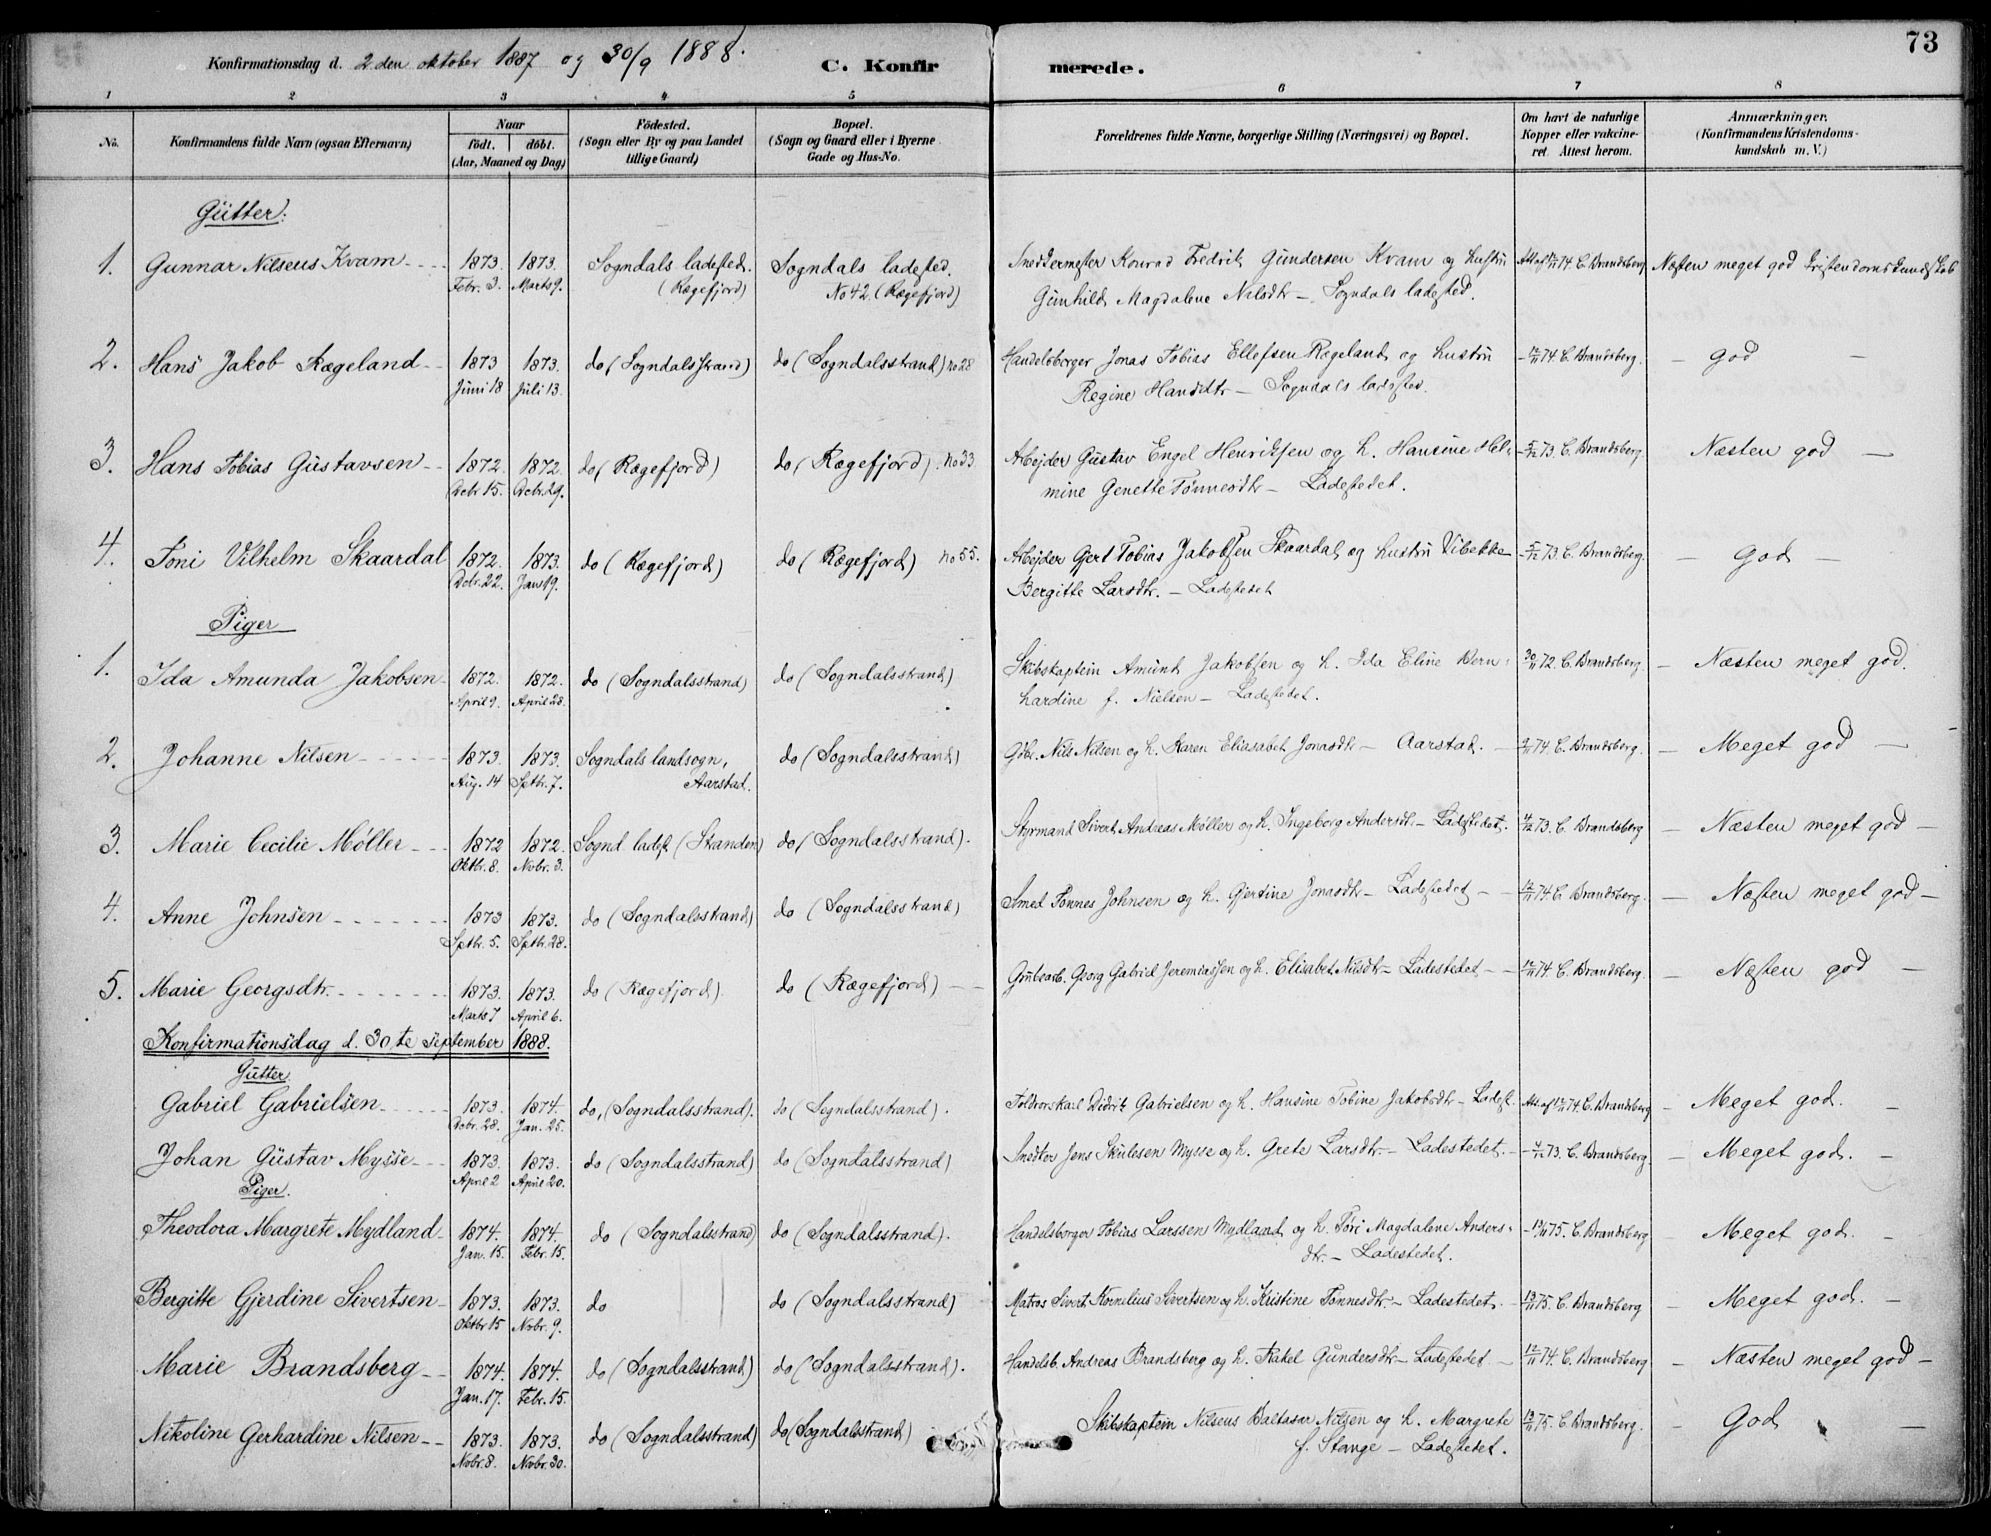 73
Konfirmationsdag d. 2 den oktober 1887 og 30/9 1888.
C. Konfirmerede.
1 2 3 4 5 6 7 8
No. Konfirmandens fulde Navn (ogsaa Efternavn) Naar født. døbt. (Aar, Maaned og Dag) Fødested. (Sogn eller By og paa Landet tillige Gaard) Bopæl. (Sogn og Gaard eller i Byerne Gade og Hus-No. Forældrenes fulde Navne, borgerlige Stilling (Næringsvei) og Bopæl. Om havt de naturlige Kopper eller vakcineret. Attest herom. Anmærkninger. (Konfirmandens Kristendomskundskab m. V.)
Gütter:
1. Gunnar Nilseus Kvam 1873. 1873. Sogndals ladested. Sogndals ladested. Snedkermester Konrad Fredrik Gundersen Kvam og hustru Att. af 12/11 74 C. Brandsberg Næsten meget god kristendomskundskab
Febr. 3. Marts 9. (Rægefjord) No 42. (Rægefjord) Gunhild Magdalene Nilsdtr – Sogndals ladested.
2. Hans Jakob Rægeland 1873 1873. do (Sogndalsstrand) do (Sogndalsstrand) no 28 Handelsborger Jonas Tobias Ellefsen Rægeland og hustru – 12/11 74 C. Brandsberg. – god –
Juni 18 Juli 13. Regine Hansdtr – Sogndals ladested.
3. Hans Tobias Gustavsen 1872. 1872. do (Rægefjord) do (Rægefjord). No 33 Arbejder Gustav Engel Henriksen og h. Hansine Hel- – 5/12 73. C. Brandsberg. Næsten god –
Dcbr. 15. Dcbr. 29. mine Genette Tønnesdtr – Ladestedet.
4. Toni Vilhelm Skaardal 1872. 1873. do (Rægefjord) do (Rægefjord) no 55. Arbejder Gjert Tobias Jakobsen Skaardal og hustru Vibekke – 5/12 73. C. Brandsberg. – God –
Dcbr. 22. Jan. 19. Bergitte Larsdtr. – Ladestedet
Piger
1. Ida Amunda Jakobsen 1872. 1872. do (Sogndalsstrand) do (Sogndalsstrand) Skibskaptein Amunt Jakobsen og h. Ida Eline Bern- 30/11 72. C. Brandsberg. – Næsten meget god.
April 9. April 28. hardine f. Nielsen – Ladestedet.
2. Johanne Nilsen 1873 1873. Sogndals landsogn, do (Sogndalsstrand) Gdbr. Nils Nilsen og h. Karen Eliasabet Jonasdtr – Aarstad. – 74. C. Brandsberg. – Meget god –
Aug. 14 Sptbr. 7. Aarstad.
3. Marie Cecilie Møller 1872 1872. Sognd. ladest. (Stranden) do (Sogndalsstrand). Styrmand Sivert Andreas Møller og h. Ingeborg Andersdtr. – Ladestedet. 73. C. Brandsberg – Næsten meget god –
Oktbr. 8. Novbr. 3.
4. Anne Johnsen 1873 1873. do (Sogndalsstrand) do (Sogndalsstrand) Smed Tønnes Johnsen og h. Gjertine Jonasdtr – Ladestedet – 12/11 74. C. Brandsberg. – Næsten meget god –
Sptbr. 5. Sptbr. 28.
5. Marie Georgsdtr. 1873. 1873. do (Rægefjord). do (Rægefjord) – Grubearb. Georg Gabriel Jeremiassen og h. Elisabet Nilsdtr – Ladestedet – 12/11 74 C. Brandsberg. – Næsten god –
Marts 7 April 6.
Konfirmationsdag d. 30te September 1888.
Gutter
Gabriel Gabrielsen 1873. 1874. do, (Sogndalsstrand). do (Sogndalsstrand). Toldrorskarl Didrik Gabrielsen og h. Hansine Tobine Jakobsdtr – Ladest. Att. af 12/11 74. C. Brandsberg – Meget god. –
Dcbr. 28. Jan. 25.
Johan Gustav Mysse 1873. 1873. do (Sogndalsstrand) do (Sogndalsstrand) Snedker Jens Skulesen Mysse og h. Grete Larsdtr. – Ladestedet. – 73. C. Brandsberg. – Meget god. –
April 2 April 20.
Piger.
Theodora Margrete Mydland 1874. 1874. do (Sogndalsstrand) do (Sogndalsstrand). Handelsborger Tobias Larssen Mydland og h. Tori Magdalene Anders- 75. C. Brandsberg – Meget god. –
Jan. 15. Febr. 15. dtr. – Ladestedet.
Bergitte Gjerdine Sivertsen 1873. 1873. do do (Sogndalsstrand) Matros Sivert Kornelius Sivertsen og h. Kristine Tønnesdtr – Ladestedet. 13/11 75. C. Brandsberg – Meget god. –
Oktbr 15 Novbr. 9.
Marie Brandsberg 1874. 1874. do (Sogndalsstrand) do (Sogndalsstrand). Handelsb. Andreas Brandsberg og h. Rakel Gundersdtr – Ladestedet – 12/11 74. C. Brandsberg – Næsten meget god –
Jan. 17. Febr. 15.
Nikoline Gerhardine Nilsen 1873. 1873. do (Sogndalsstrand) do (Sogndalsstrand) Skibskaptein Nilseus Baltasar Nilsen og h. Margrete 13/11 75. C. Brandsberg. – God –
Novbr. 8. Novbr. 30. f. Stange – Ladestedet.